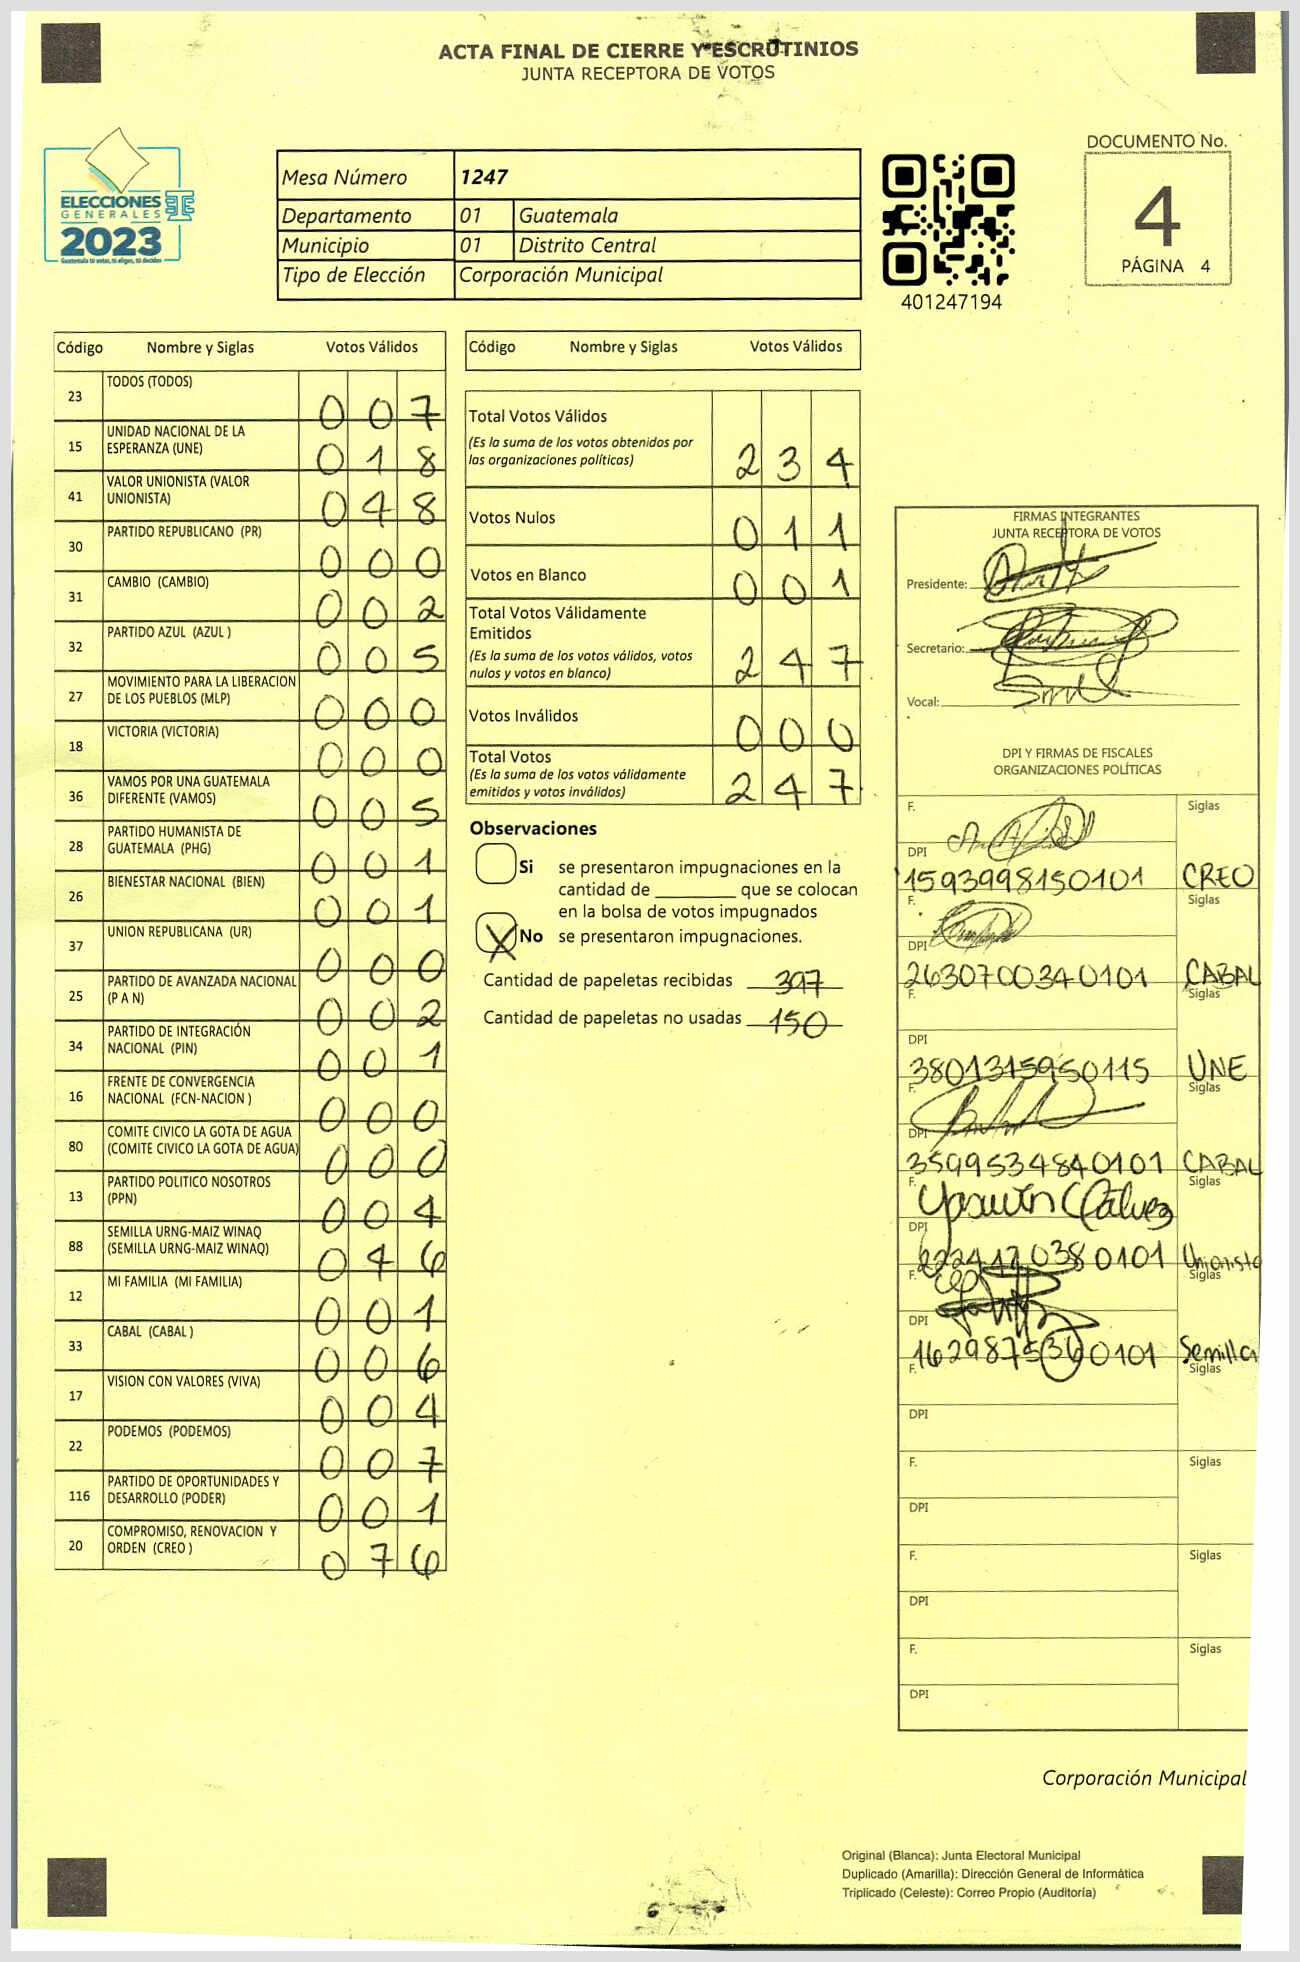 ACTA FINAL DE CIERRE Y ESCRUTINIOS
JUNTA RECEPTORA DE VOTOS
ELECCIONES
GENERALES
2023
Guatemala tú votas, tú eliges, tú decides
Mesa Número 1247
Departamento 01 Guatemala
Municipio 01 Distrito Central
Tipo de Elección Corporación Municipal
401247194
DOCUMENTO No.
4
PÁGINA 4
Código Nombre y Siglas Votos Válidos
23 TODOS (TODOS) 0 0 7
15 UNIDAD NACIONAL DE LA ESPERANZA (UNE) 0 1 8
41 VALOR UNIONISTA (VALOR UNIONISTA) 0 4 8
30 PARTIDO REPUBLICANO (PR) 0 0 0
31 CAMBIO (CAMBIO) 0 0 2
32 PARTIDO AZUL (AZUL ) 0 0 5
27 MOVIMIENTO PARA LA LIBERACION DE LOS PUEBLOS (MLP) 0 0 0
18 VICTORIA (VICTORIA) 0 0 0
36 VAMOS POR UNA GUATEMALA DIFERENTE (VAMOS) 0 0 5
28 PARTIDO HUMANISTA DE GUATEMALA (PHG) 0 0 1
26 BIENESTAR NACIONAL (BIEN) 0 0 1
37 UNION REPUBLICANA (UR) 0 0 0
25 PARTIDO DE AVANZADA NACIONAL (P A N) 0 0 2
34 PARTIDO DE INTEGRACIÓN NACIONAL (PIN) 0 0 1
16 FRENTE DE CONVERGENCIA NACIONAL (FCN-NACION ) 0 0 0
80 COMITE CIVICO LA GOTA DE AGUA (COMITE CIVICO LA GOTA DE AGUA) 0 0 0
13 PARTIDO POLITICO NOSOTROS (PPN) 0 0 4
88 SEMILLA URNG-MAIZ WINAQ (SEMILLA URNG-MAIZ WINAQ) 0 4 6
12 MI FAMILIA (MI FAMILIA) 0 0 1
33 CABAL (CABAL ) 0 0 6
17 VISION CON VALORES (VIVA) 0 0 4
22 PODEMOS (PODEMOS) 0 0 7
116 PARTIDO DE OPORTUNIDADES Y DESARROLLO (PODER) 0 0 1
20 COMPROMISO, RENOVACION Y ORDEN (CREO ) 0 7 6
Código Nombre y Siglas Votos Válidos
Total Votos Válidos
(Es la suma de los votos obtenidos por
las organizaciones políticas) 2 3 4
Votos Nulos 0 1 1
Votos en Blanco 0 0 1
Total Votos Válidamente
Emitidos
(Es la suma de los votos válidos, votos
nulos y votos en blanco) 2 4 7
Votos Inválidos 0 0 0
Total Votos
(Es la suma de los votos válidamente
emitidos y votos inválidos) 2 4 7
Observaciones
Si se presentaron impugnaciones en la
cantidad de ________ que se colocan
en la bolsa de votos impugnados
X No se presentaron impugnaciones.
Cantidad de papeletas recibidas 397
Cantidad de papeletas no usadas 150
FIRMAS INTEGRANTES
JUNTA RECEPTORA DE VOTOS
Presidente:
Secretario:
Vocal:
DPI Y FIRMAS DE FISCALES
ORGANIZACIONES POLÍTICAS
F. Siglas
DPI
1593998150101 CREO
F. Siglas
DPI
2630700340101 CABAL
F. Siglas
DPI
3801315950115 UNE
F. Siglas
DPI
3599534840101 CABAL
F. Siglas
DPI
2224170380101 Unionista
F. Siglas
DPI
1629875360101 Semilla
F. Siglas
DPI
F. Siglas
DPI
F. Siglas
DPI
F. Siglas
DPI
Corporación Municipal
Original (Blanca): Junta Electoral Municipal
Duplicado (Amarilla): Dirección General de Informática
Triplicado (Celeste): Correo Propio (Auditoría)